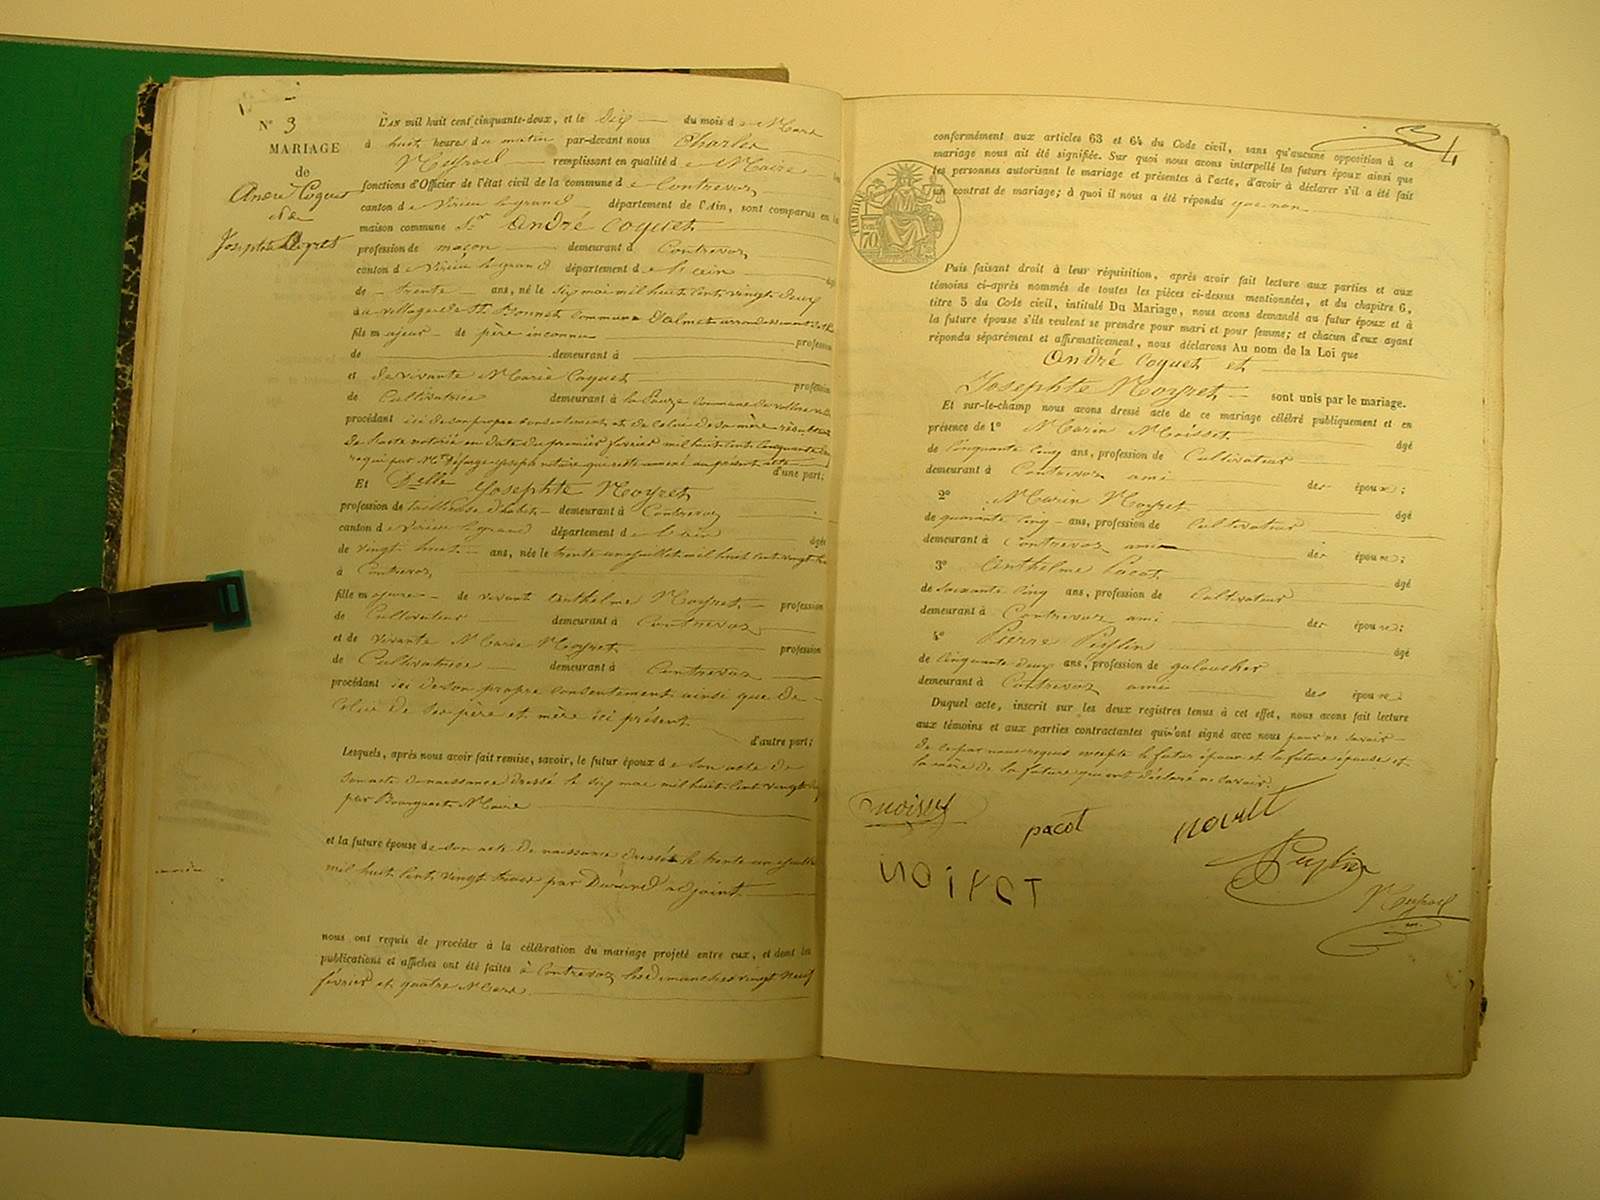 N° 3
MARIAGE
de
André Coquet
et de
Josephte Noyret
L'AN mil huit cent cinquante-deux, et le dix du mois de Mars
à huit heures du matin par-devant nous Charles
Meyroel remplissant en qualité de Maire les
fonctions d'Officier de l'état civil de la commune de Contrevoz
canton de Virieu le grand département de l'Ain, sont comparus en la
maison commune Sr André Coquet
profession de maçon demeurant à Contrevoz
canton de Virieu le grand département de l'ain âgé
de trente ans, né le six mai mil huit cent vingt deux
au village de St Bonnet commune
fils majeur de père inconnu profession
de demeurant à
et de vivante Marie Coquet profession
de Cultivatrice demeurant à la commune de
procédant ici de son propre consentement et de celui de sa mère résultant
de l'acte notarié en date du premier février mil huit cent cinquante deux
reçu par Me notaire qui reste annexé au présent acte
d'une part;
Et Delle Josephte Noyret
profession de tailleuse d'habits demeurant à Contrevoz
canton de Virieu le grand département de l'ain âgée
de vingt huit ans, née le trente un juillet mil huit cent vingt trois
à Contrevoz
fille majeure de vivant Anthelme Noyret profession
de Cultivateur demeurant à Contrevoz
et de vivante Marie Noyret profession
de Cultivatrice demeurant à Contrevoz
procédant ici de son propre consentement ainsi que de
celui de ses père et mère ici présent
d'autre part;
Lesquels, après nous avoir fait remise, savoir, le futur époux de son acte de
son acte de naissance dressé le six mai mil huit cent vingt deux
par Bourguet Maire
et la future épouse de son acte de naissance dressé le trente un juillet
mil huit cent vingt trois par Durand adjoint
nous ont requis de procéder à la célébration du mariage projeté entre eux, et dont les
publications et affiches ont été faites à Contrevoz les dimanches vingt neuf
février et quatre Mars
4
conformément aux articles 63 et 64 du Code civil, sans qu'aucune opposition à ce
mariage nous ait été signifiée. Sur quoi nous avons interpellé les futurs époux ainsi que
les personnes autorisant le mariage et présentes à l'acte, d'avoir à déclarer s'il a été fait
un contrat de mariage; à quoi il nous a été répondu que non
TIMBRE
70
Puis faisant droit à leur réquisition, après avoir fait lecture aux parties et aux
témoins ci-après nommés de toutes les pièces ci-dessus mentionnées, et du chapitre 6,
titre 5 du Code civil, intitulé Du Mariage, nous avons demandé au futur époux et à
la future épouse s'ils veulent se prendre pour mari et pour femme; et chacun d'eux ayant
répondu séparément et affirmativement, nous déclarons Au nom de la Loi que
André Coquet et
Josephte Noyret sont unis par le mariage.
Et sur-le-champ nous avons dressé acte de ce mariage célébré publiquement et en
présence de 1° Marin Moisset âgé
de cinquante cinq ans, profession de Cultivateur
demeurant à Contrevoz ami des époux;
2° Marin Noyret âgé
de quarante cinq ans, profession de Cultivateur
demeurant à Contrevoz ami des époux;
3° Anthelme Pacot âgé
de soixante cinq ans, profession de Cultivateur
demeurant à Contrevoz ami des époux;
4° Pierre Peyssin âgé
de cinquante deux ans, profession de galocher
demeurant à Contrevoz ami des époux;
Duquel acte, inscrit sur les deux registres tenus à cet effet, nous avons fait lecture
aux témoins et aux parties contractantes qui ont signé avec nous pour ne savoir
de ce par nous requis excepté le futur époux et la future épouse et
la mère de la future qui ont déclaré ne savoir.
moisset
pacot
noyret
NOIRET